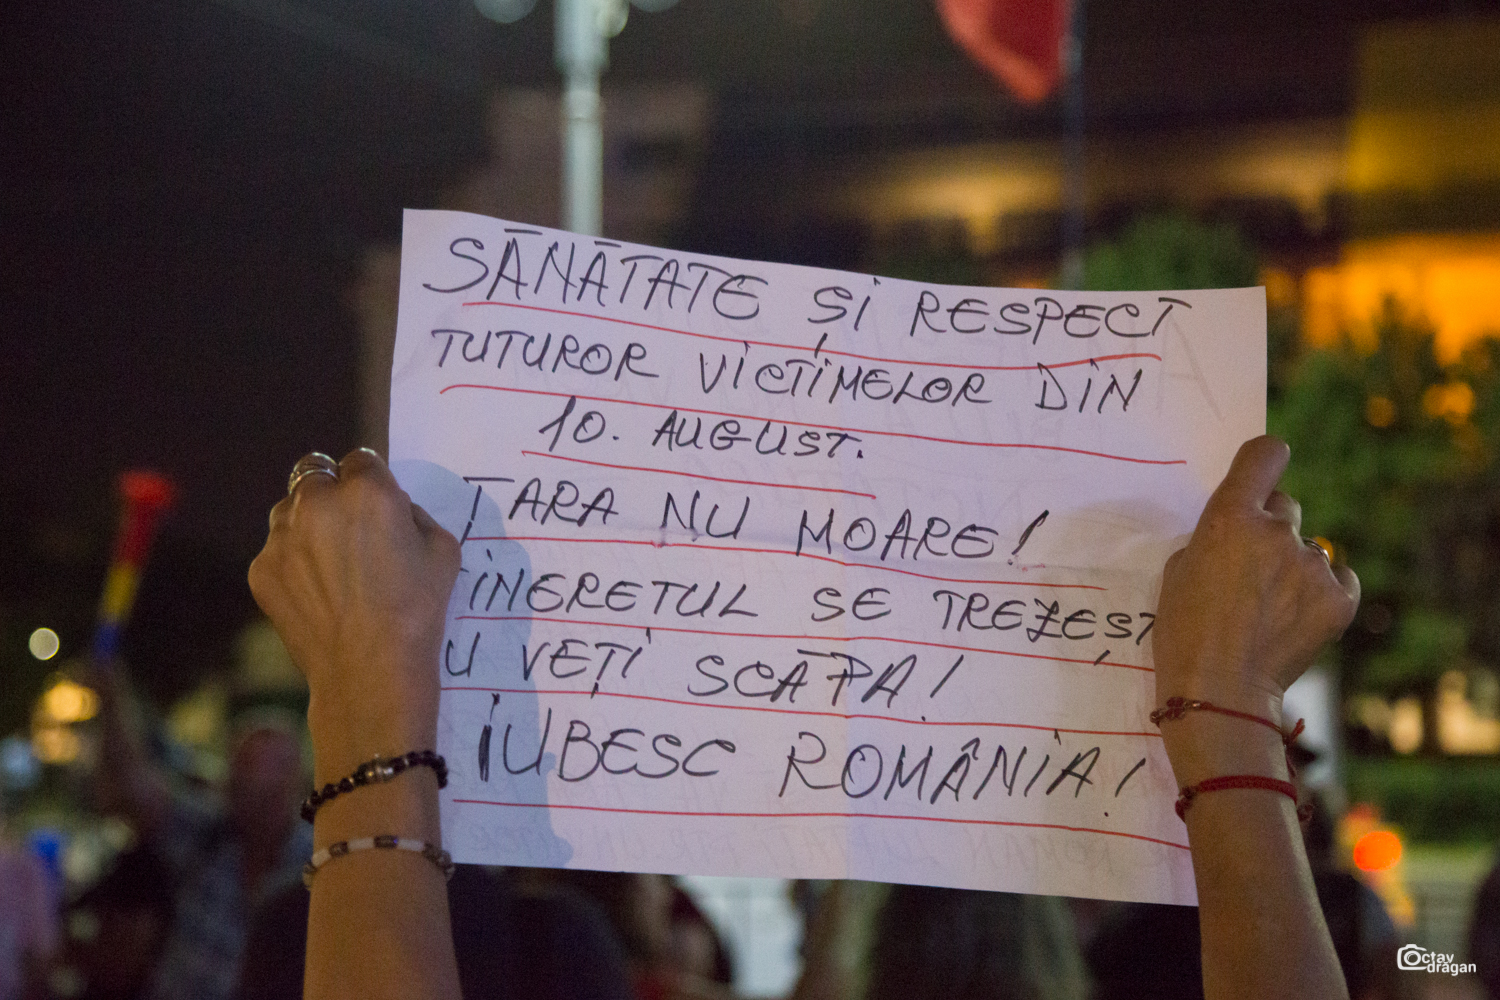 SĂNĂTATE ȘI RESPECT
TUTUROR VICTIMELOR DIN
10. AUGUST.
ȚARA NU MOARE!
TINERETUL SE TREZEȘT
U VEȚI SCĂPA!
IUBESC ROMÂNIA!
Octav
dragan